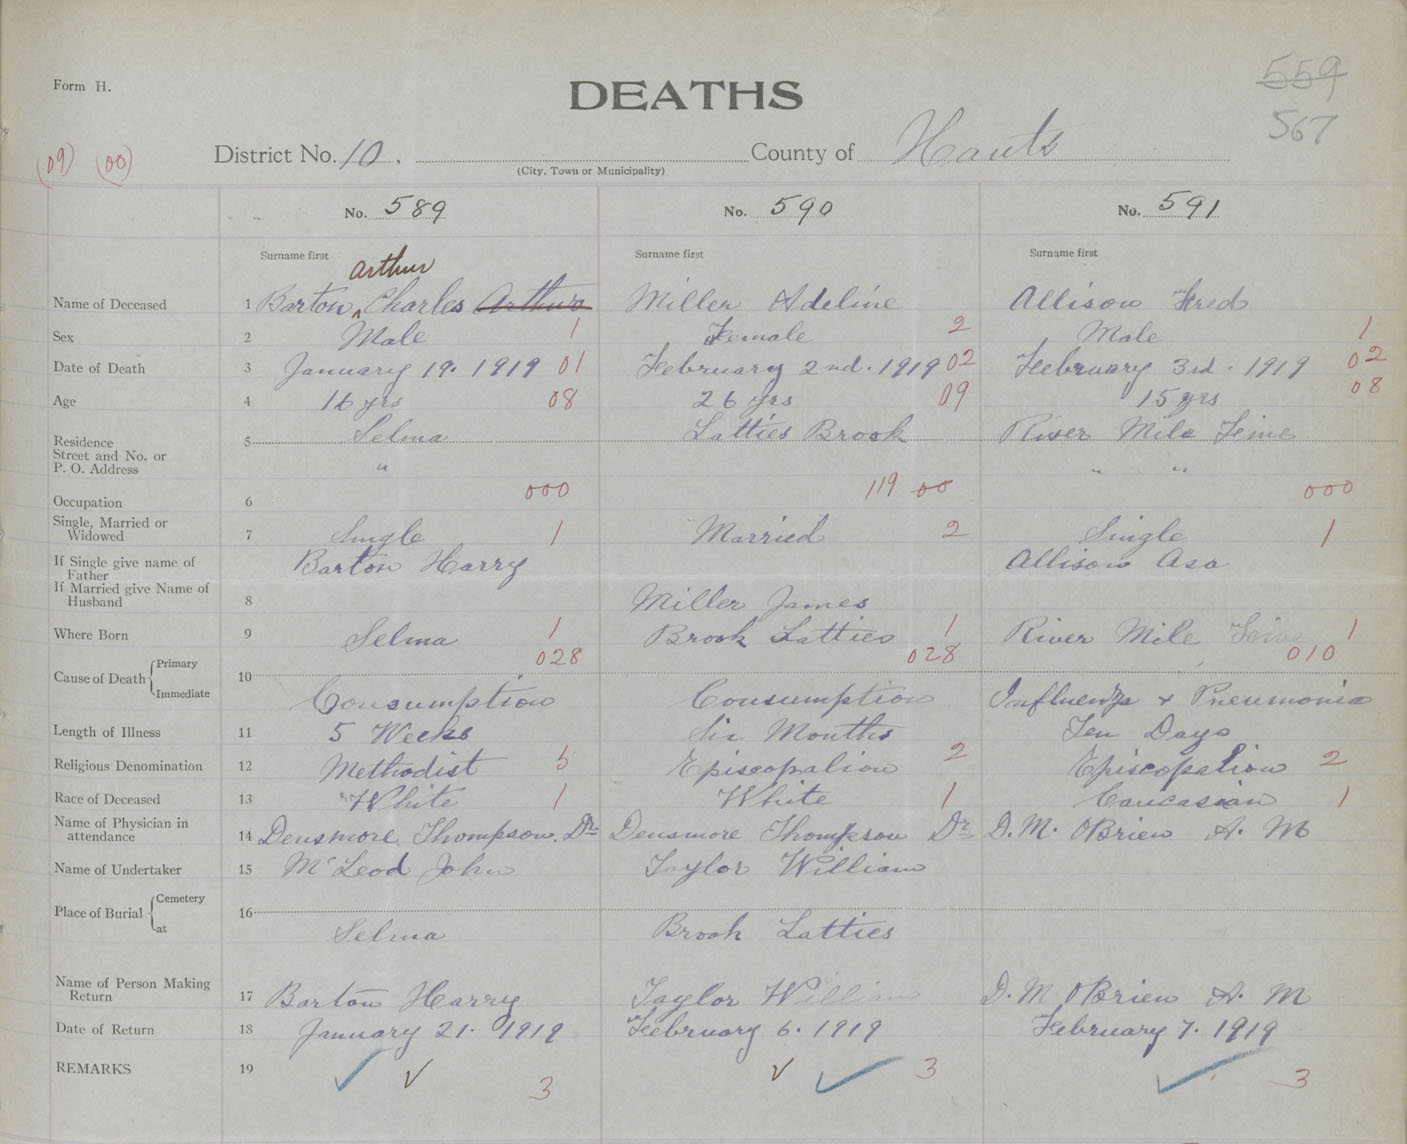 Form H.
DEATHS
559
567
(09) (00)
District No. 10. County of Hants
(City, Town or Municipality)
No. 589 No. 590 No. 591
Surname first Surname first Surname first
Arthur
Name of Deceased 1 Barton, Charles Arthur Miller Adeline Allison Fred
Sex 2 Male 1 Female 2 Male 1
Date of Death 3 January 19. 1919 01 February 2nd. 1919 02 February 3rd. 1919 02
Age 4 16 yrs 08 26 yrs 09 15 yrs 08
Residence 5 Selma Latties Brook River Mile
Street and No. or
P. O. Address " " "
Occupation 6 000 119 00 000
Single, Married or
Widowed 7 Single 1 Married 2 Single 1
If Single give name of
Father Barton Harry Allison Asa
If Married give Name of
Husband 8 Miller James
Where Born 9 Selma 1 Brook Latties 1 River Mile 1
028 028 010
Cause of Death { Primary
Immediate 10 Consumption Consumption Influenza & Pneumonia
Length of Illness 11 5 Weeks Six Months Ten Days
Religious Denomination 12 Methodist 5 Episcopalion 2 Episcopalion 2
Race of Deceased 13 White 1 White 1 Caucasian 1
Name of Physician in
attendance 14 Densmore, Thompson, Dr Densmore Thompson Dr D. M. OBrien A. M
Name of Undertaker 15 McLeod John Taylor William
Place of Burial { Cemetery
at 16 Selma Brook Latties
Name of Person Making
Return 17 Barton Harry Taylor William D. M. OBrien A. M
Date of Return 18 January 21. 1919 February 6. 1919 February 7. 1919
REMARKS 19 ✓ ✓ 3 ✓ ✓ 3 ✓ 3